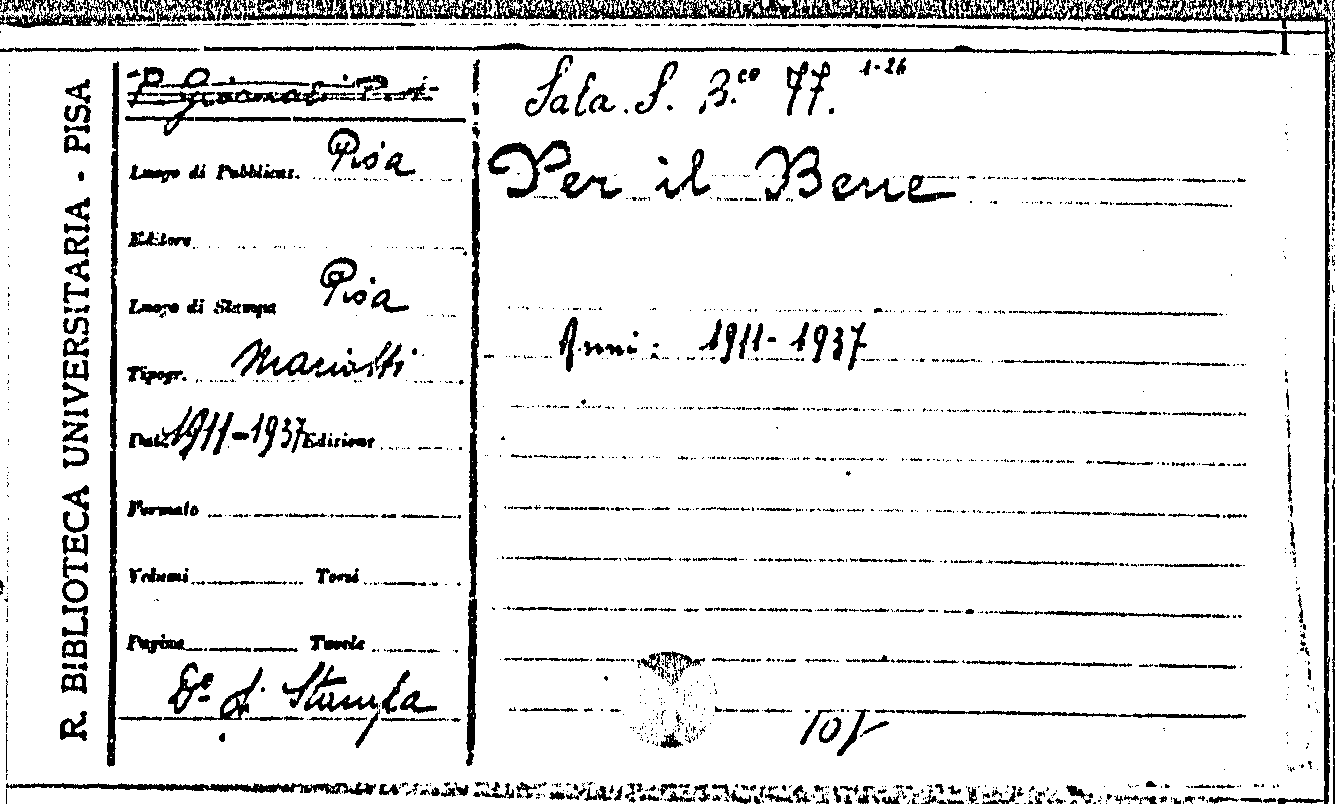 R. BIBLIOTECA UNIVERSITARIA - PISA
P. Giornali P. A.
Luogo di Pubblicaz. Pisa
Editore
Luogo di Stampa Pisa
Tipogr. Mariotti
Data 1911-1937 Edizione
Formato
Volumi Tomi
Pagine Tavole
D.° d. Stampa
Sala. S. B.co 77. 1-26
Per il Bene
Anni: 1911-1937